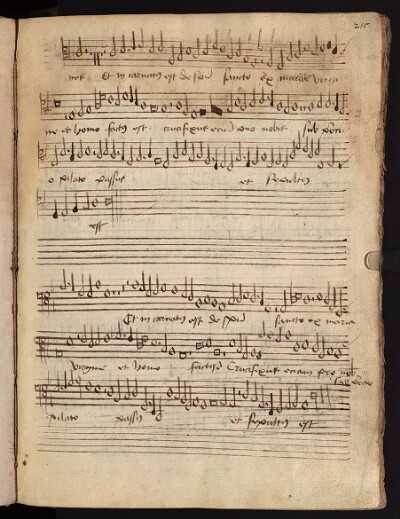 Et incarnatus est de spu sancto ex maria virgi
ne et homo factus est crucifixus eciam pro nobis sub ponti
o pilato passus et sepultus
est
Et incarnatus est de spu sancto ex maria
virgine et homo factus Crucifixus eciam pro nob
pilato passus et sepultus est